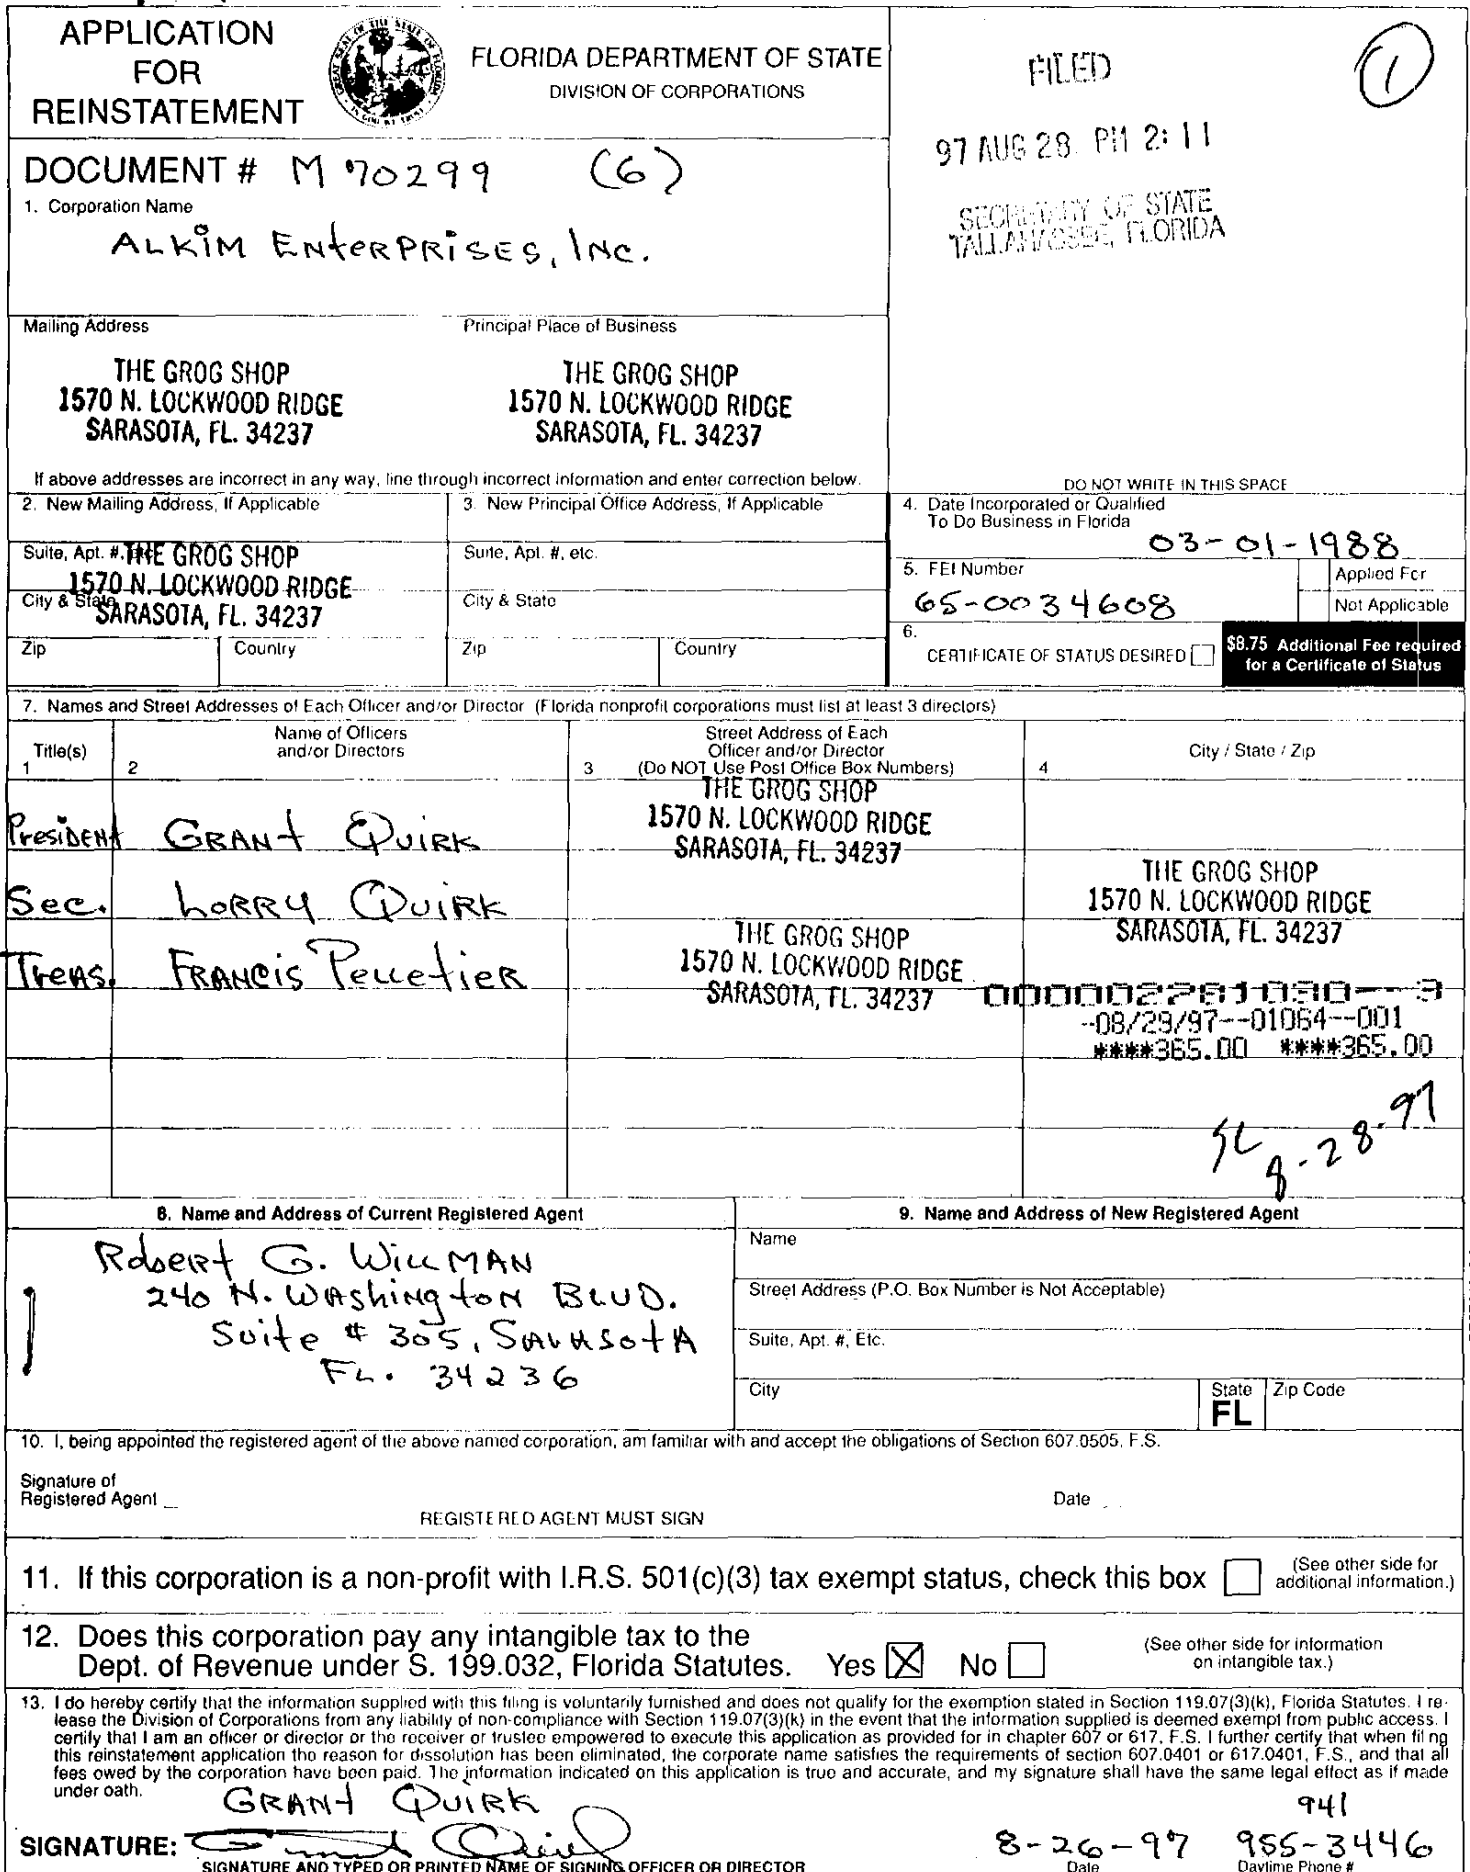 APPLICATION
FOR
REINSTATEMENT
FLORIDA DEPARTMENT OF STATE
DIVISION OF CORPORATIONS
FILED
1
97 AUG 28 PM 2:11
SECRETARY OF STATE
TALLAHASSEE, FLORIDA
DOCUMENT # M70299 (6)
1. Corporation Name
ALKIM ENTERPRISES, INC.
Mailing Address
Principal Place of Business
THE GROG SHOP
1570 N. LOCKWOOD RIDGE
SARASOTA, FL. 34237
THE GROG SHOP
1570 N. LOCKWOOD RIDGE
SARASOTA, FL. 34237
If above addresses are incorrect in any way, line through incorrect information and enter correction below.
DO NOT WRITE IN THIS SPACE
2. New Mailing Address, If Applicable
3. New Principal Office Address, If Applicable
4. Date Incorporated or Qualified
To Do Business in Florida
03-01-1988
Suite, Apt. #, etc.
THE GROG SHOP
1570 N. LOCKWOOD RIDGE
SARASOTA, FL. 34237
Suite, Apt. #, etc.
5. FEI Number
65-0034608
Applied For
Not Applicable
City & State
City & State
6.
CERTIFICATE OF STATUS DESIRED
$8.75 Additional Fee required
for a Certificate of Status
Zip
Country
Zip
Country
7. Names and Street Addresses of Each Officer and/or Director (Florida nonprofit corporations must list at least 3 directors)
Title(s)
1
Name of Officers
and/or Directors
2
Street Address of Each
Officer and/or Director
3 (Do NOT Use Post Office Box Numbers)
City / State / Zip
4
President GRANT QUIRK
THE GROG SHOP
1570 N. LOCKWOOD RIDGE
SARASOTA, FL. 34237
Sec. LORRY QUIRK
THE GROG SHOP
1570 N. LOCKWOOD RIDGE
SARASOTA, FL. 34237
Treas. FRANCIS Pelletier
THE GROG SHOP
1570 N. LOCKWOOD RIDGE
SARASOTA, FL. 34237
--08/29/97--01064--001
****365.00 ****365.00
8-28-97
8. Name and Address of Current Registered Agent
9. Name and Address of New Registered Agent
Robert G. WILLMAN
240 N. Washington BLVD.
Suite # 305, SARASOTA
FL. 34236
Name
Street Address (P.O. Box Number is Not Acceptable)
Suite, Apt. #, Etc.
City
State
FL
Zip Code
10. I, being appointed the registered agent of the above named corporation, am familiar with and accept the obligations of Section 607.0505, F.S.
Signature of
Registered Agent
Date
REGISTERED AGENT MUST SIGN
11. If this corporation is a non-profit with I.R.S. 501(c)(3) tax exempt status, check this box
(See other side for
additional information.)
12. Does this corporation pay any intangible tax to the
Dept. of Revenue under S. 199.032, Florida Statutes. Yes X No
(See other side for information
on intangible tax.)
13. I do hereby certify that the information supplied with this filing is voluntarily furnished and does not qualify for the exemption stated in Section 119.07(3)(k), Florida Statutes. I re-
lease the Division of Corporations from any liability of non-compliance with Section 119.07(3)(k) in the event that the information supplied is deemed exempt from public access. I
certify that I am an officer or director or the receiver or trustee empowered to execute this application as provided for in chapter 607 or 617, F.S. I further certify that when filing
this reinstatement application the reason for dissolution has been eliminated, the corporate name satisfies the requirements of section 607.0401 or 617.0401, F.S., and that all
fees owed by the corporation have been paid. The information indicated on this application is true and accurate, and my signature shall have the same legal effect as if made
under oath.
GRANT QUIRK
941
SIGNATURE:
8-26-97 955-3446
SIGNATURE AND TYPED OR PRINTED NAME OF SIGNING OFFICER OR DIRECTOR
Date
Daytime Phone #